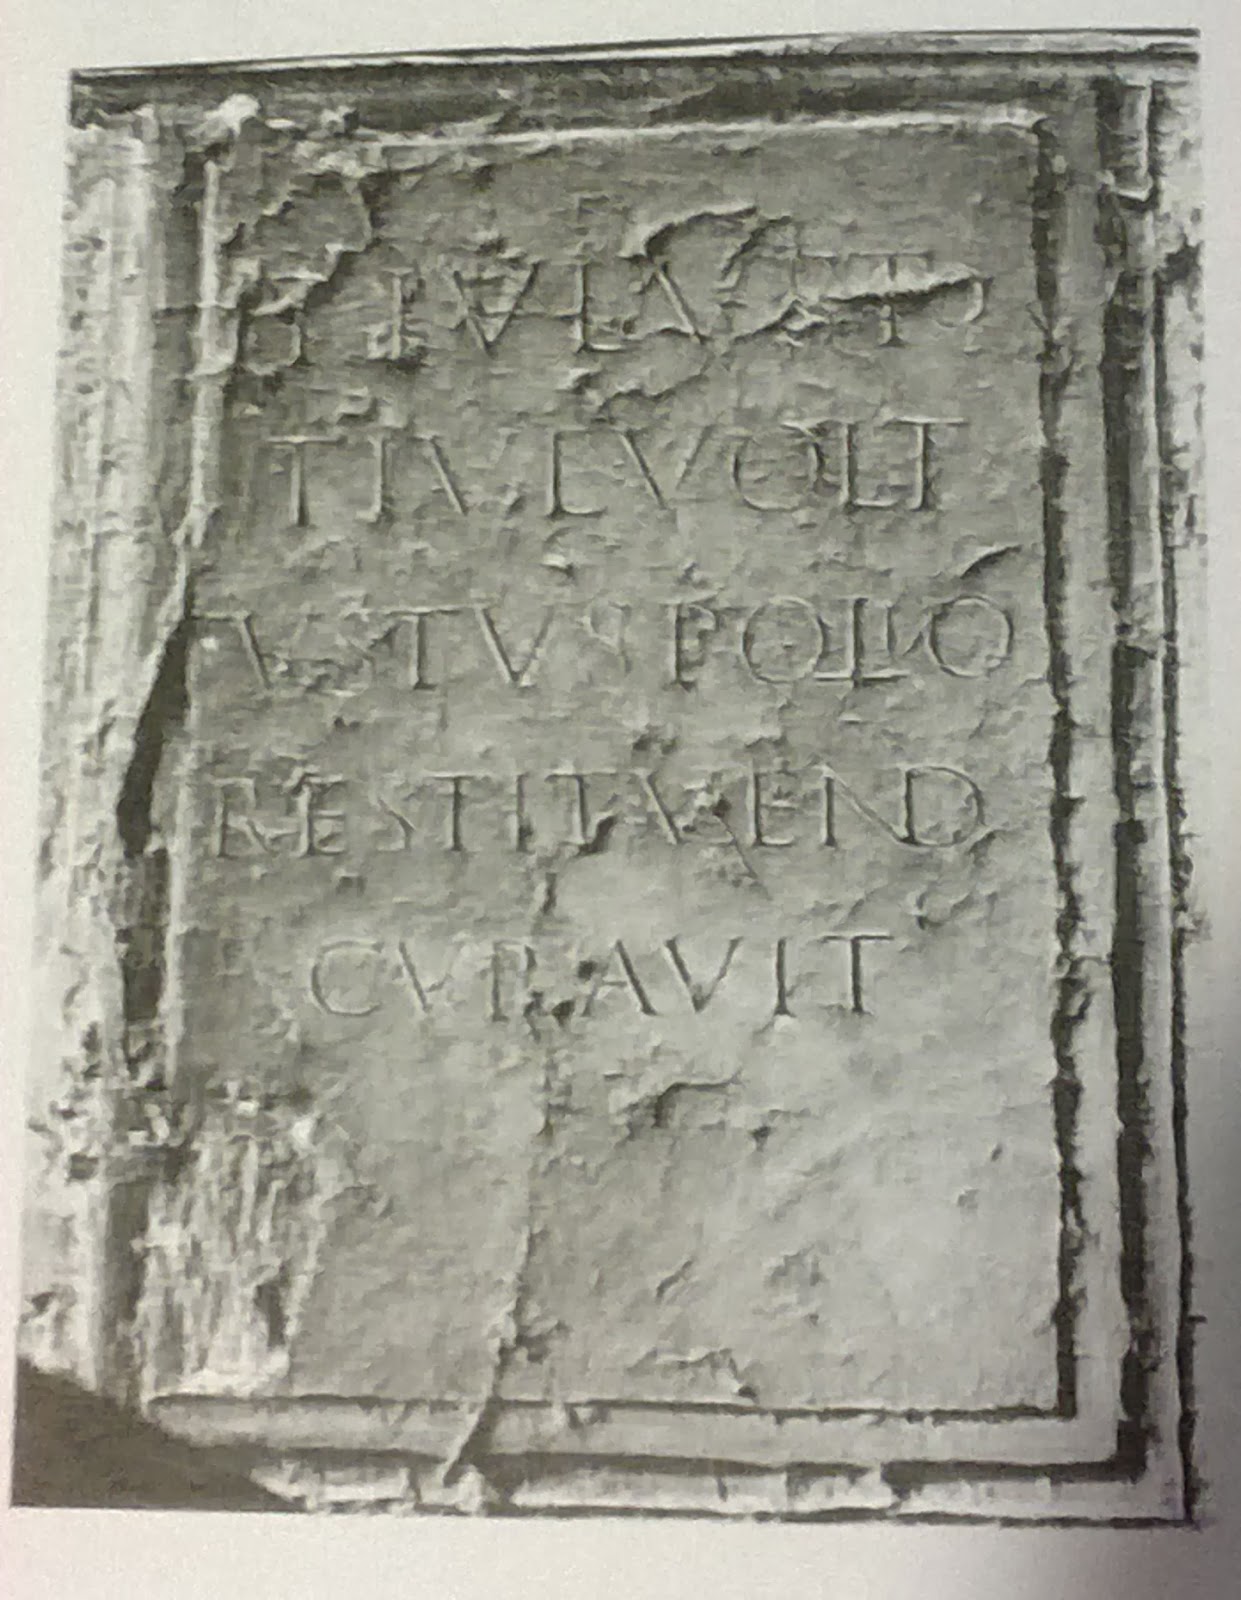 TIVL VOLT
VSTVS POLLIO
RESTITVEND
CVRAVIT